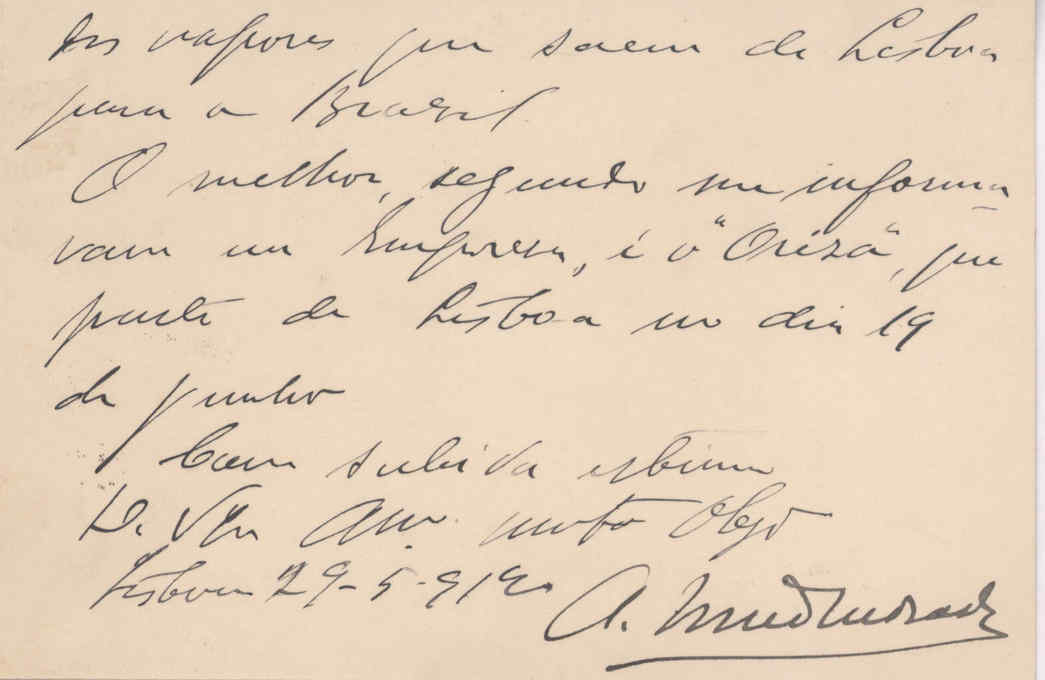 dos vapores que saem de Lisboa
para o Brasil
O melhor, segundo me informa
vam na Empresa, é o "Oriza", que
parte de Lisboa no dia 19
de junho
Com subida estima
De V. Am. muto Obgo
Lisboa 29-5-912
A.